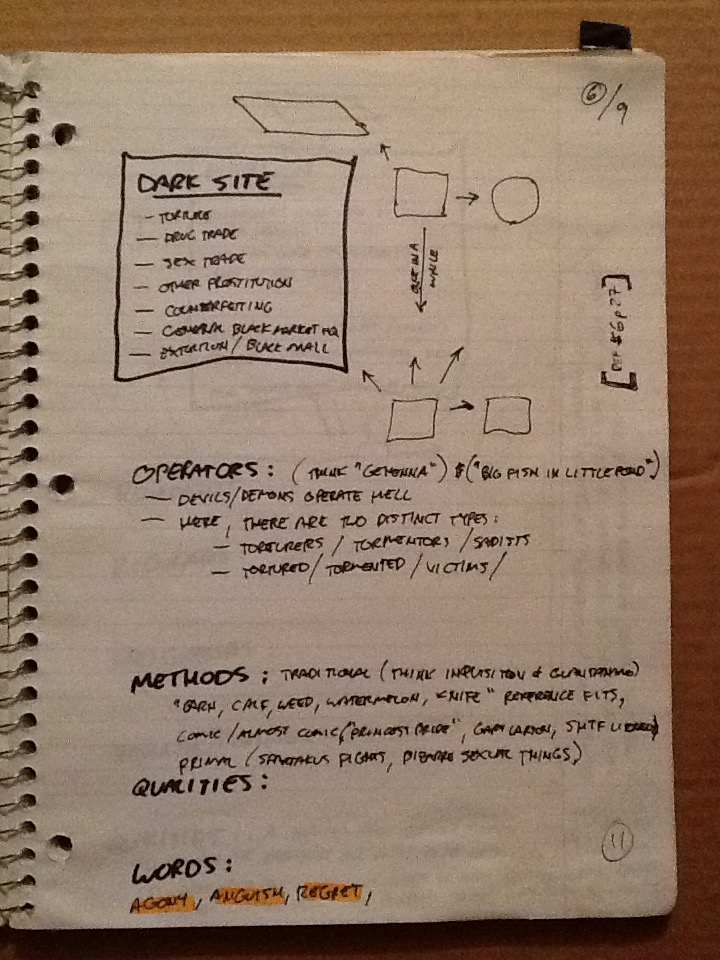 6/9
DARK SITE
- TORTURE
- DRUG TRADE
- SEX TRADE
- OTHER PROSTITUTION
- COUNTERFEITING
- GENERAL BLACK MARKET HQ
- EXTORTION / BLACK MAIL
ONCE IN A
WHILE
[REF #6 p 27]
OPERATORS: (THINK "GEHENNA") & ("BIG FISH IN LITTLE POND")
- DEVILS/DEMONS OPERATE HELL
- HERE, THERE ARE TWO DISTINCT TYPES:
- TORTURERS / TORMENTORS / SADISTS
- TORTURED / TORMENTED / VICTIMS /
METHODS: TRADITIONAL (THINK INQUISITION & GUANTANAMO)
"BARN, CALF, WEED, WATERMELON, KNIFE" REFERENCE FITS,
COMIC / ALMOST COMIC ("PRINCESS BRIDE", GARY LARSON, SMTF
PRIMAL (SPARTAKUS FIGHTS, BIZARRE SEXUAL THINGS)
QUALITIES:
11
WORDS:
AGONY, ANGUISH, REGRET,